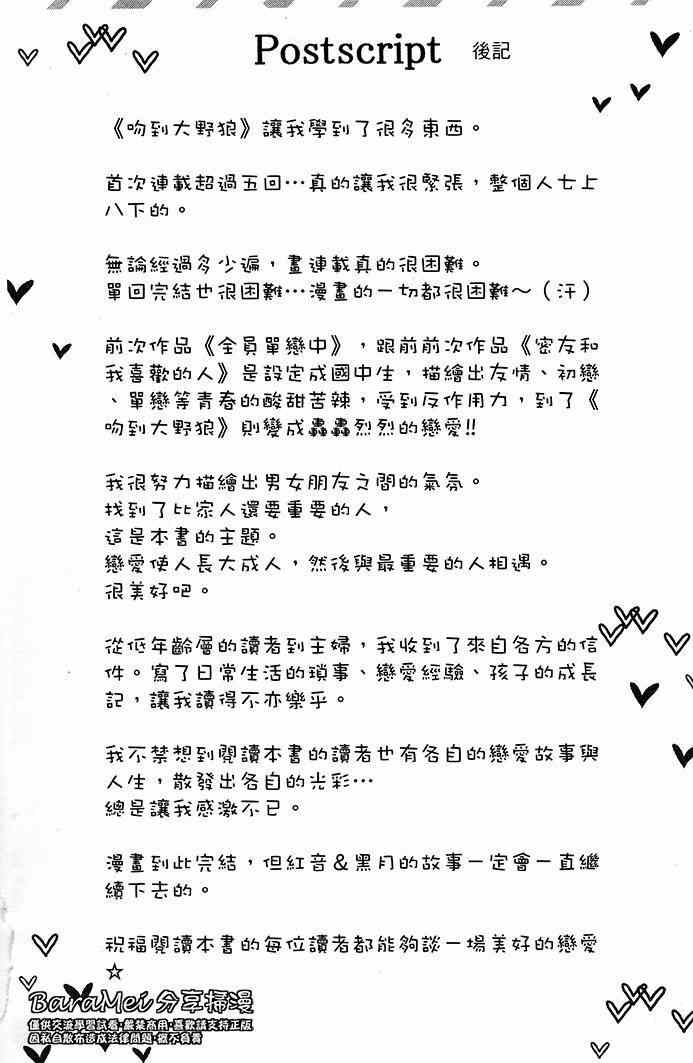 Postscript 後記
《吻到大野狼》讓我學到了很多東西。
首次連載超過五回…真的讓我很緊張，整個人七上
八下的。
無論經過多少遍，畫連載真的很困難。
單回完結也很困難…漫畫的一切都很困難～（汗）
前次作品《全員單戀中》，跟前前次作品《密友和
我喜歡的人》是設定成國中生，描繪出友情、初戀
、單戀等青春的酸甜苦辣，受到反作用力，到了《
吻到大野狼》則變成轟轟烈烈的戀愛!!
我很努力描繪出男女朋友之間的氣氛。
找到了比家人還要重要的人，
這是本書的主題。
戀愛使人長大成人，然後與最重要的人相遇。
很美好吧。
從低年齡層的讀者到主婦，我收到了來自各方的信
件。寫了日常生活的瑣事、戀愛經驗、孩子的成長
記，讓我讀得不亦樂乎。
我不禁想到閱讀本書的讀者也有各自的戀愛故事與
人生，散發出各自的光彩…
總是讓我感激不已。
漫畫到此完結，但紅音&黑月的故事一定會一直繼
續下去的。
祝福閱讀本書的每位讀者都能夠談一場美好的戀愛
☆
BaraMei 分享掃漫
僅供交流學習試看·嚴禁商用·喜歡請支持正版
因私自散布造成法律問題·概不負責